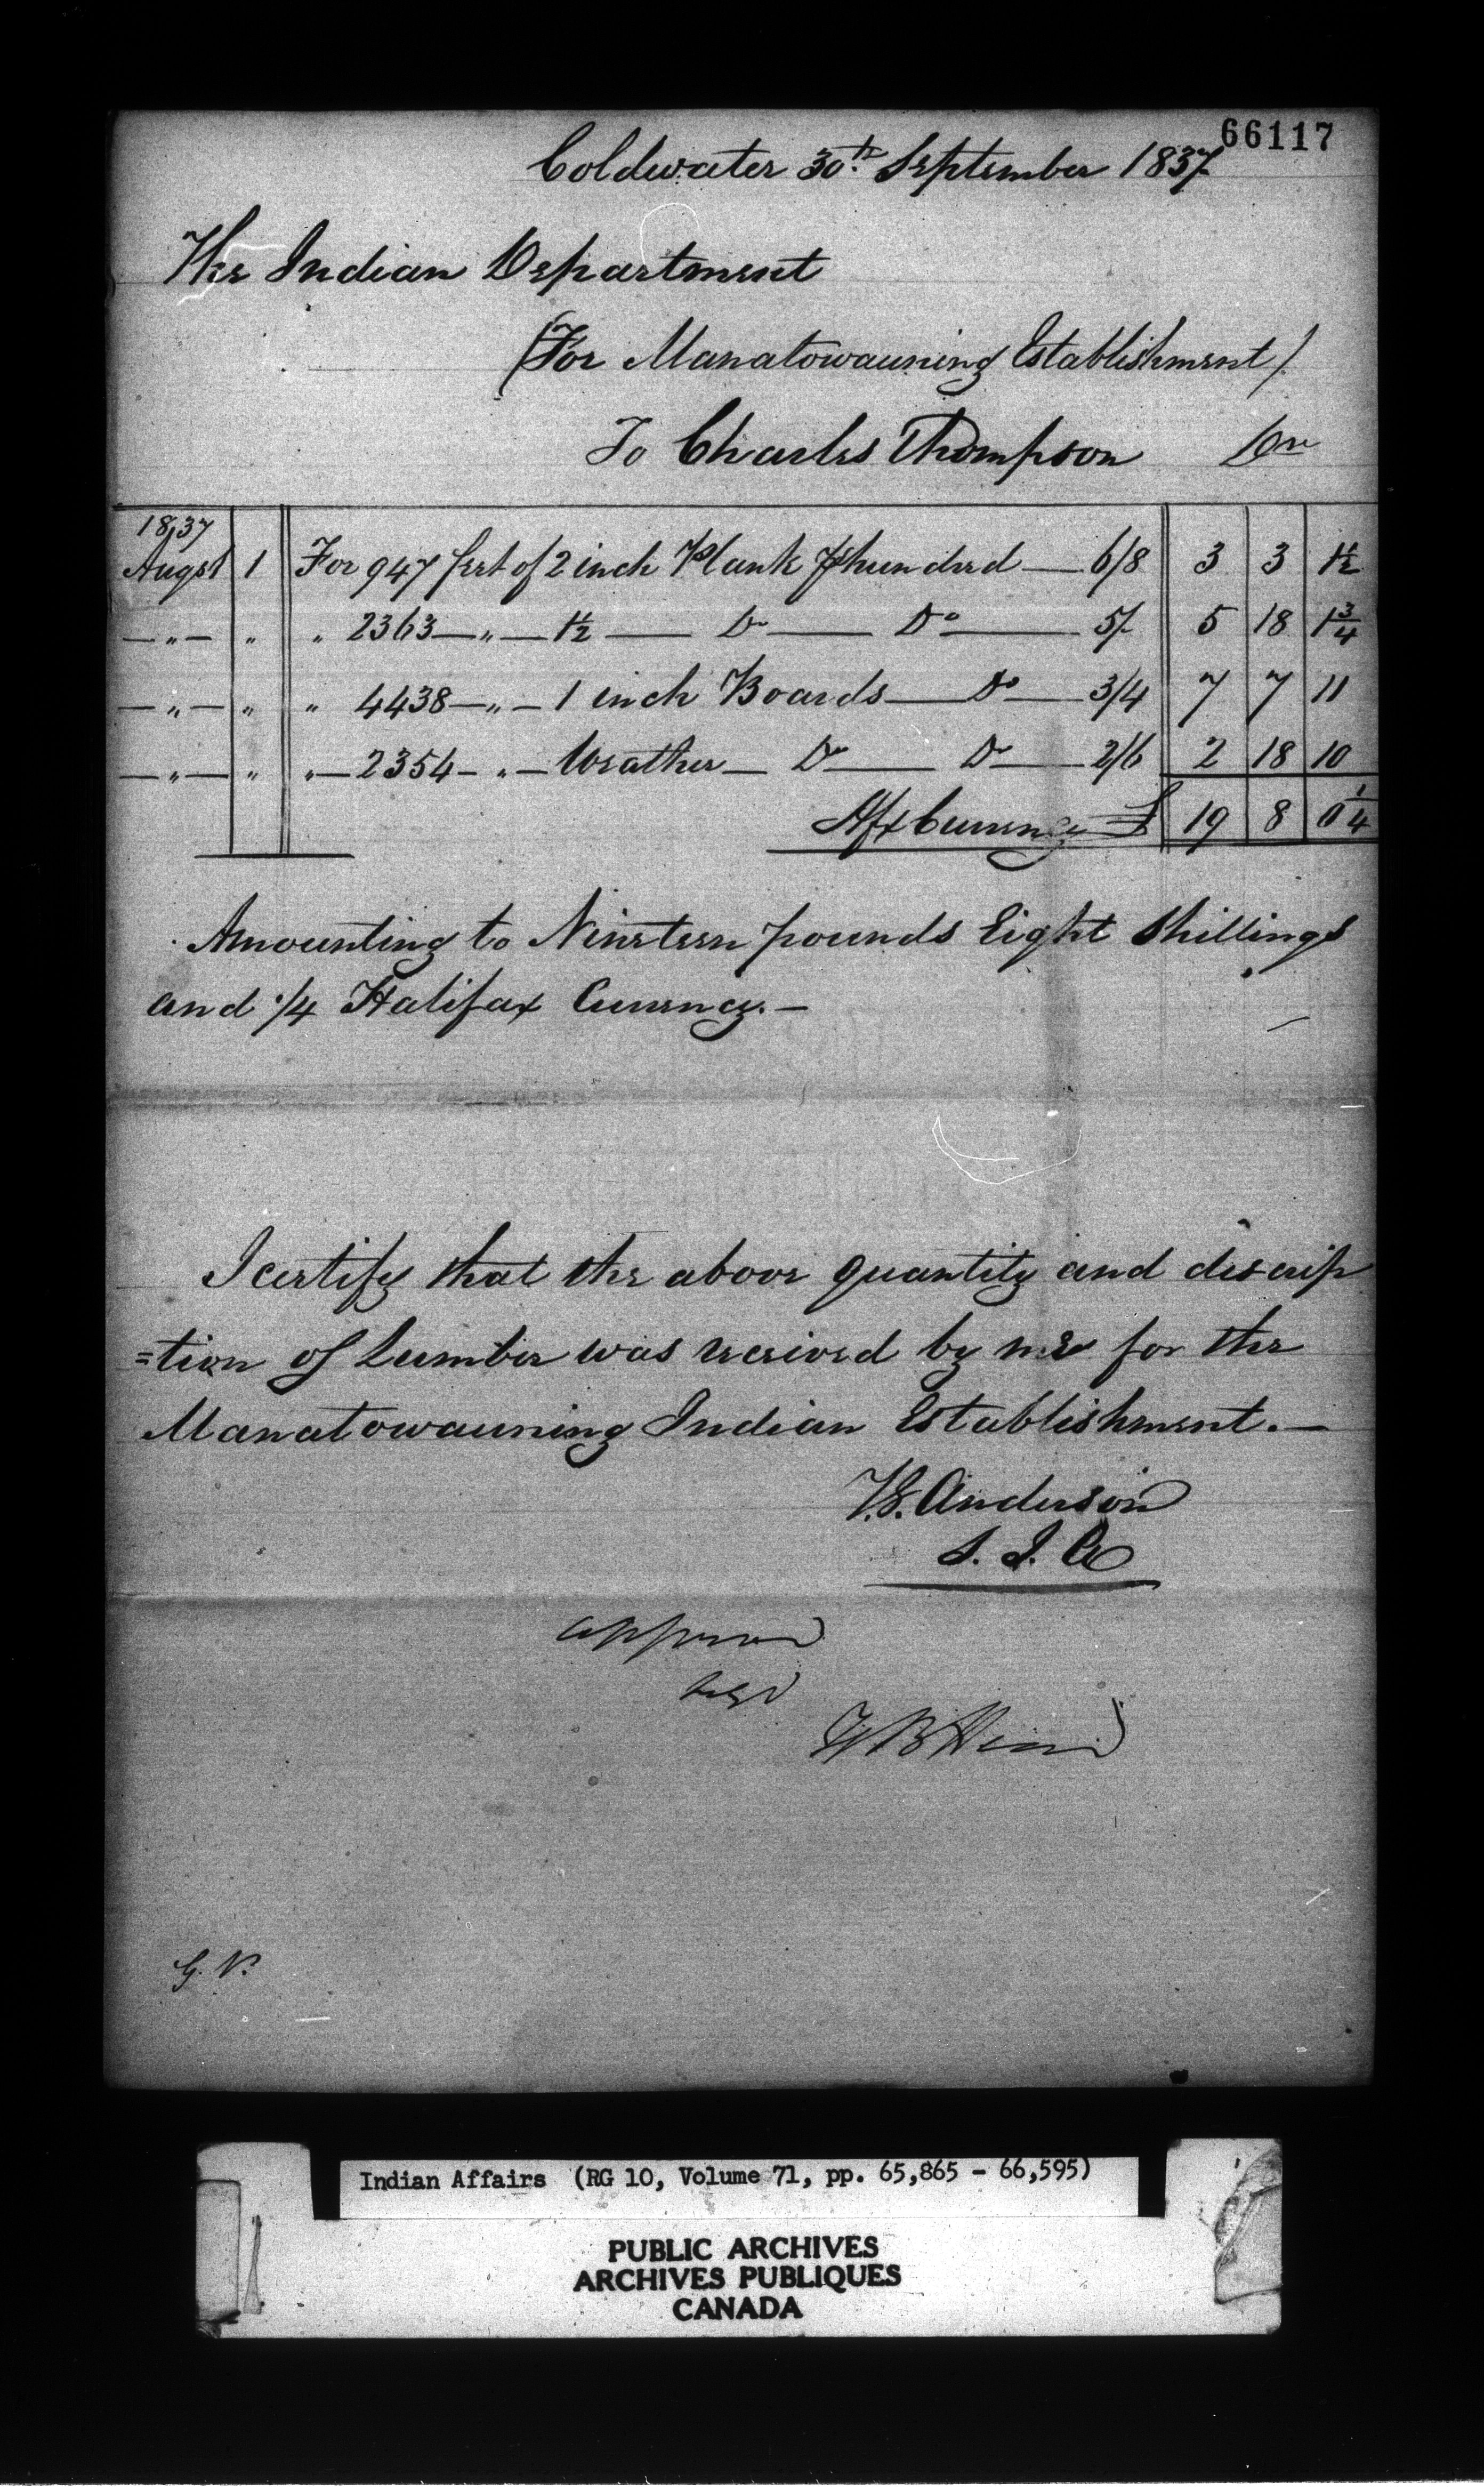 66117
Coldwater 30th September 1837
The Indian Department
(For Manatowauning Establishment)
To Charles Thompson Dr
1837
Augst 1 For 947 feet of 2 inch Plank ⅌ hundred — 6/8 3 3 1½
— " — " " 2363 — " — 1½ — Do — Do — 5/- 5 18 1¾
— " — " " 4438 — " — 1 inch Boards — Do — 3/4 7 7 11
— " — " " — 2354 — " — Weather — Do — Do — 2/6 2 18 10
Hfx Currency £ 19 8 0¼
Amounting to Nineteen pounds Eight Shillings
and ¼ Halifax Currency. —
I certify that the above quantity and descrip
=tion of Lumber was received by me for the
Manatowauning Indian Establishment. —
T.G. Anderson
S. I. A
approved
G. V.
Indian Affairs (RG 10, Volume 71, pp. 65,865 - 66,595)
PUBLIC ARCHIVES
ARCHIVES PUBLIQUES
CANADA